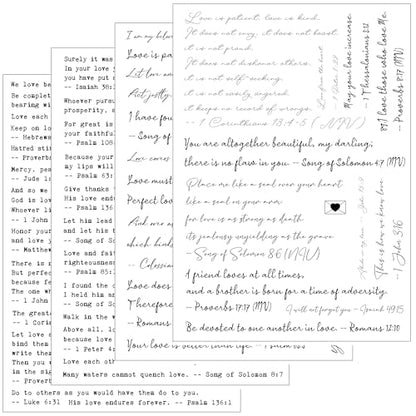 We love be
Be complet
bearing wi
Love each
Keep on lo
-- Hebrews
Hatred sti
-- Proverb
Mercy, pea
-- Jude 1:
And so we
God is lov
Whoever li
-- 1 John
Honor your
and love y
-- Matthew
There is n
But perfec
because fe
The one wh
-- 1 John
The greate
-- 1 Corin
Let love a
bind them
write them
Then you w
in the sig
-- Proverb
Do to others as you would have them do to you.
-- Luke 6:31 His love endures forever. -- Psalm 136:1
Surely it was
In your love
you have put
-- Isaiah 38:
Whoever pursu
prosperity, s
For great is
your faithful
-- Psalm 108:
Because your
my lips will
-- Psalm 63:
Give thanks
His love ende
-- Psalm 136:
Let him lead
and let his b
-- Song of So
Love and fait
Righteousness
-- Psalm 85:1
I found the o
I held him an
-- Song of So
Walk in the w
Above all, lo
because love
-- 1 Peter 4:
Love each oth
Many waters cannot quench love. -- Song of Solomon 8:7
I am my belove
Love is pa
Let love an
Act justly,
I have fou
-- Song of
Love covers
Love must
Perfect lov
And over a
which binds
-- Colossia
Love does
Therefore
-- Romans
Your love is better than life.
Love is patient, love is kind.
It does not envy, it does not boast,
it is not proud.
It does not dishonor others,
it is not self-seeking,
it is not easily angered,
it keeps no record of wrongs.
-- 1 Corinthians 13:4-5 (NIV)
You are altogether beautiful, my darling;
there is no flaw in you -- Song of Solomon 4:7 (NIV)
Place me like a seal over your heart
like a seal on your arm;
for love is as strong as death
its jealousy unyielding as the grave
-- Song of Solomon 8:6 (NIV)
A friend loves at all times,
and a brother is born for a time of adversity.
-- Proverbs 17:17 (NIV)
I will not forget you -- Isaiah 49:15
Be devoted to one another in love. -- Romans 12:10
May your love increase
-- 1 Thessalonians 3:12
I love those who love Me
-- Proverbs 8:17 (NIV)
This is how we know love
-- 1 John 3:16